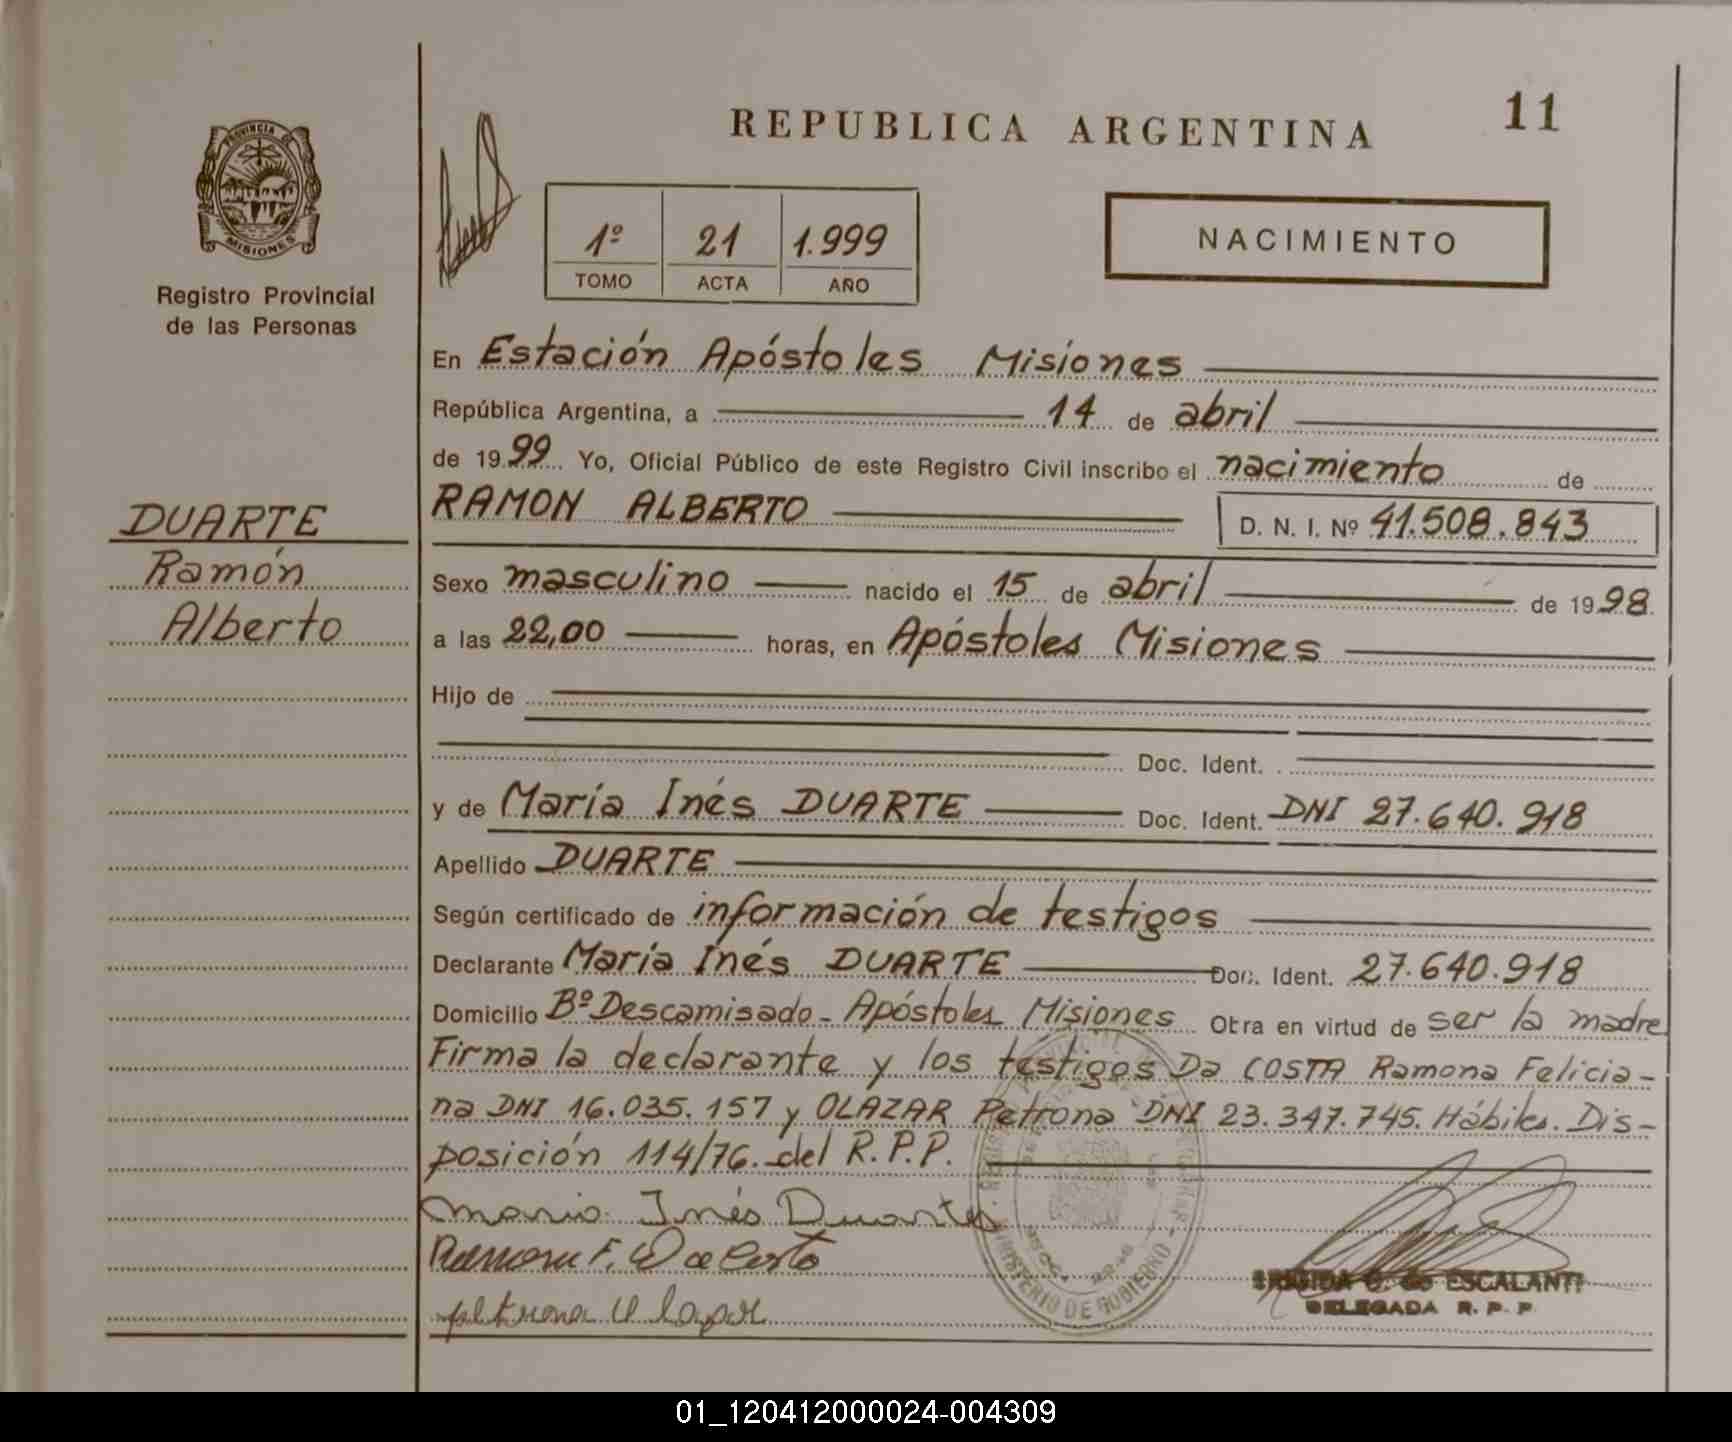 REPUBLICA ARGENTINA
11
PROVINCIA DE
MISIONES
Registro Provincial
de las Personas
1º 21 1.999
TOMO ACTA AÑO
NACIMIENTO
En Estación Apóstoles Misiones
República Argentina, a 14 de abril
de 1999 Yo, Oficial Público de este Registro Civil inscribo el nacimiento de
RAMON ALBERTO D. N. I. Nº 41.508.843
DUARTE
Ramón
Alberto
Sexo masculino nacido el 15 de abril de 1998
a las 22,00 horas, en Apóstoles Misiones
Hijo de
Doc. Ident.
y de María Inés DUARTE Doc. Ident. DNI 27.640.918
Apellido DUARTE
Según certificado de información de testigos
Declarante María Inés DUARTE Doc. Ident. 27.640.918
Domicilio Bº Descamisado - Apóstoles Misiones Obra en virtud de ser la madre
Firma la declarante y los testigos Da COSTA Ramona Felicia-
na DNI 16.035.157 y OLAZAR Petrona DNI 23.347.745. Hábiles. Dis-
posición 114/76. del R.P.P.
Maria Inés Duarte
Ramona F. Da Costa
petrona Olazar
MINISTERIO DE GOBIERNO
BRIGIDA G. de ESCALANTE
DELEGADA R. P. P.
01_120412000024-004309